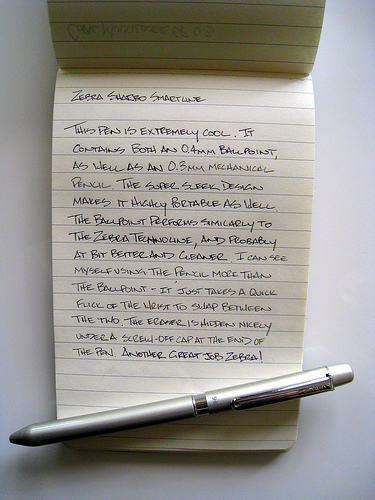 ZEBRA SHARBO SMARTLINE
THIS PEN IS EXTREMELY COOL. IT
CONTAINS BOTH AN 0.4MM BALLPOINT,
AS WELL AS AN 0.3MM MECHANICAL
PENCIL. THE SUPER SLEEK DESIGN
MAKES IT HIGHLY PORTABLE AS WELL.
THE BALLPOINT PERFORMS SIMILARLY TO
THE ZEBRA TECHNOLINE, AND PROBABLY
AT BIT BETTER AND CLEANER. I CAN SEE
MYSELF USING THE PENCIL MORE THAN
THE BALLPOINT - IT JUST TAKES A QUICK
FLICK OF THE WRIST TO SWAP BETWEEN
THE TWO. THE ERASER IS HIDDEN NICELY
UNDER A SCREW-OFF CAP AT THE END OF
THE PEN. ANOTHER GREAT JOB ZEBRA!